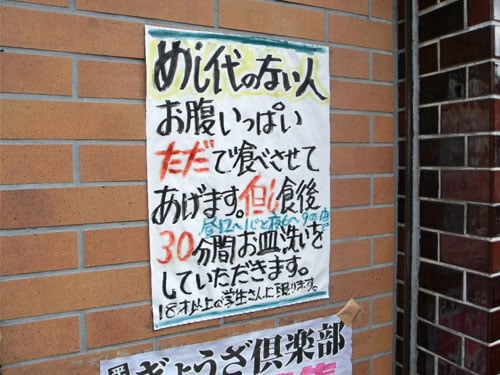 めし代のない人
お腹いっぱい
ただで食べさせて
あげます。但し食後
30分間お皿洗いを
していただきます。
18才以上の学生さんに限ります。
ぎょうざ倶楽部